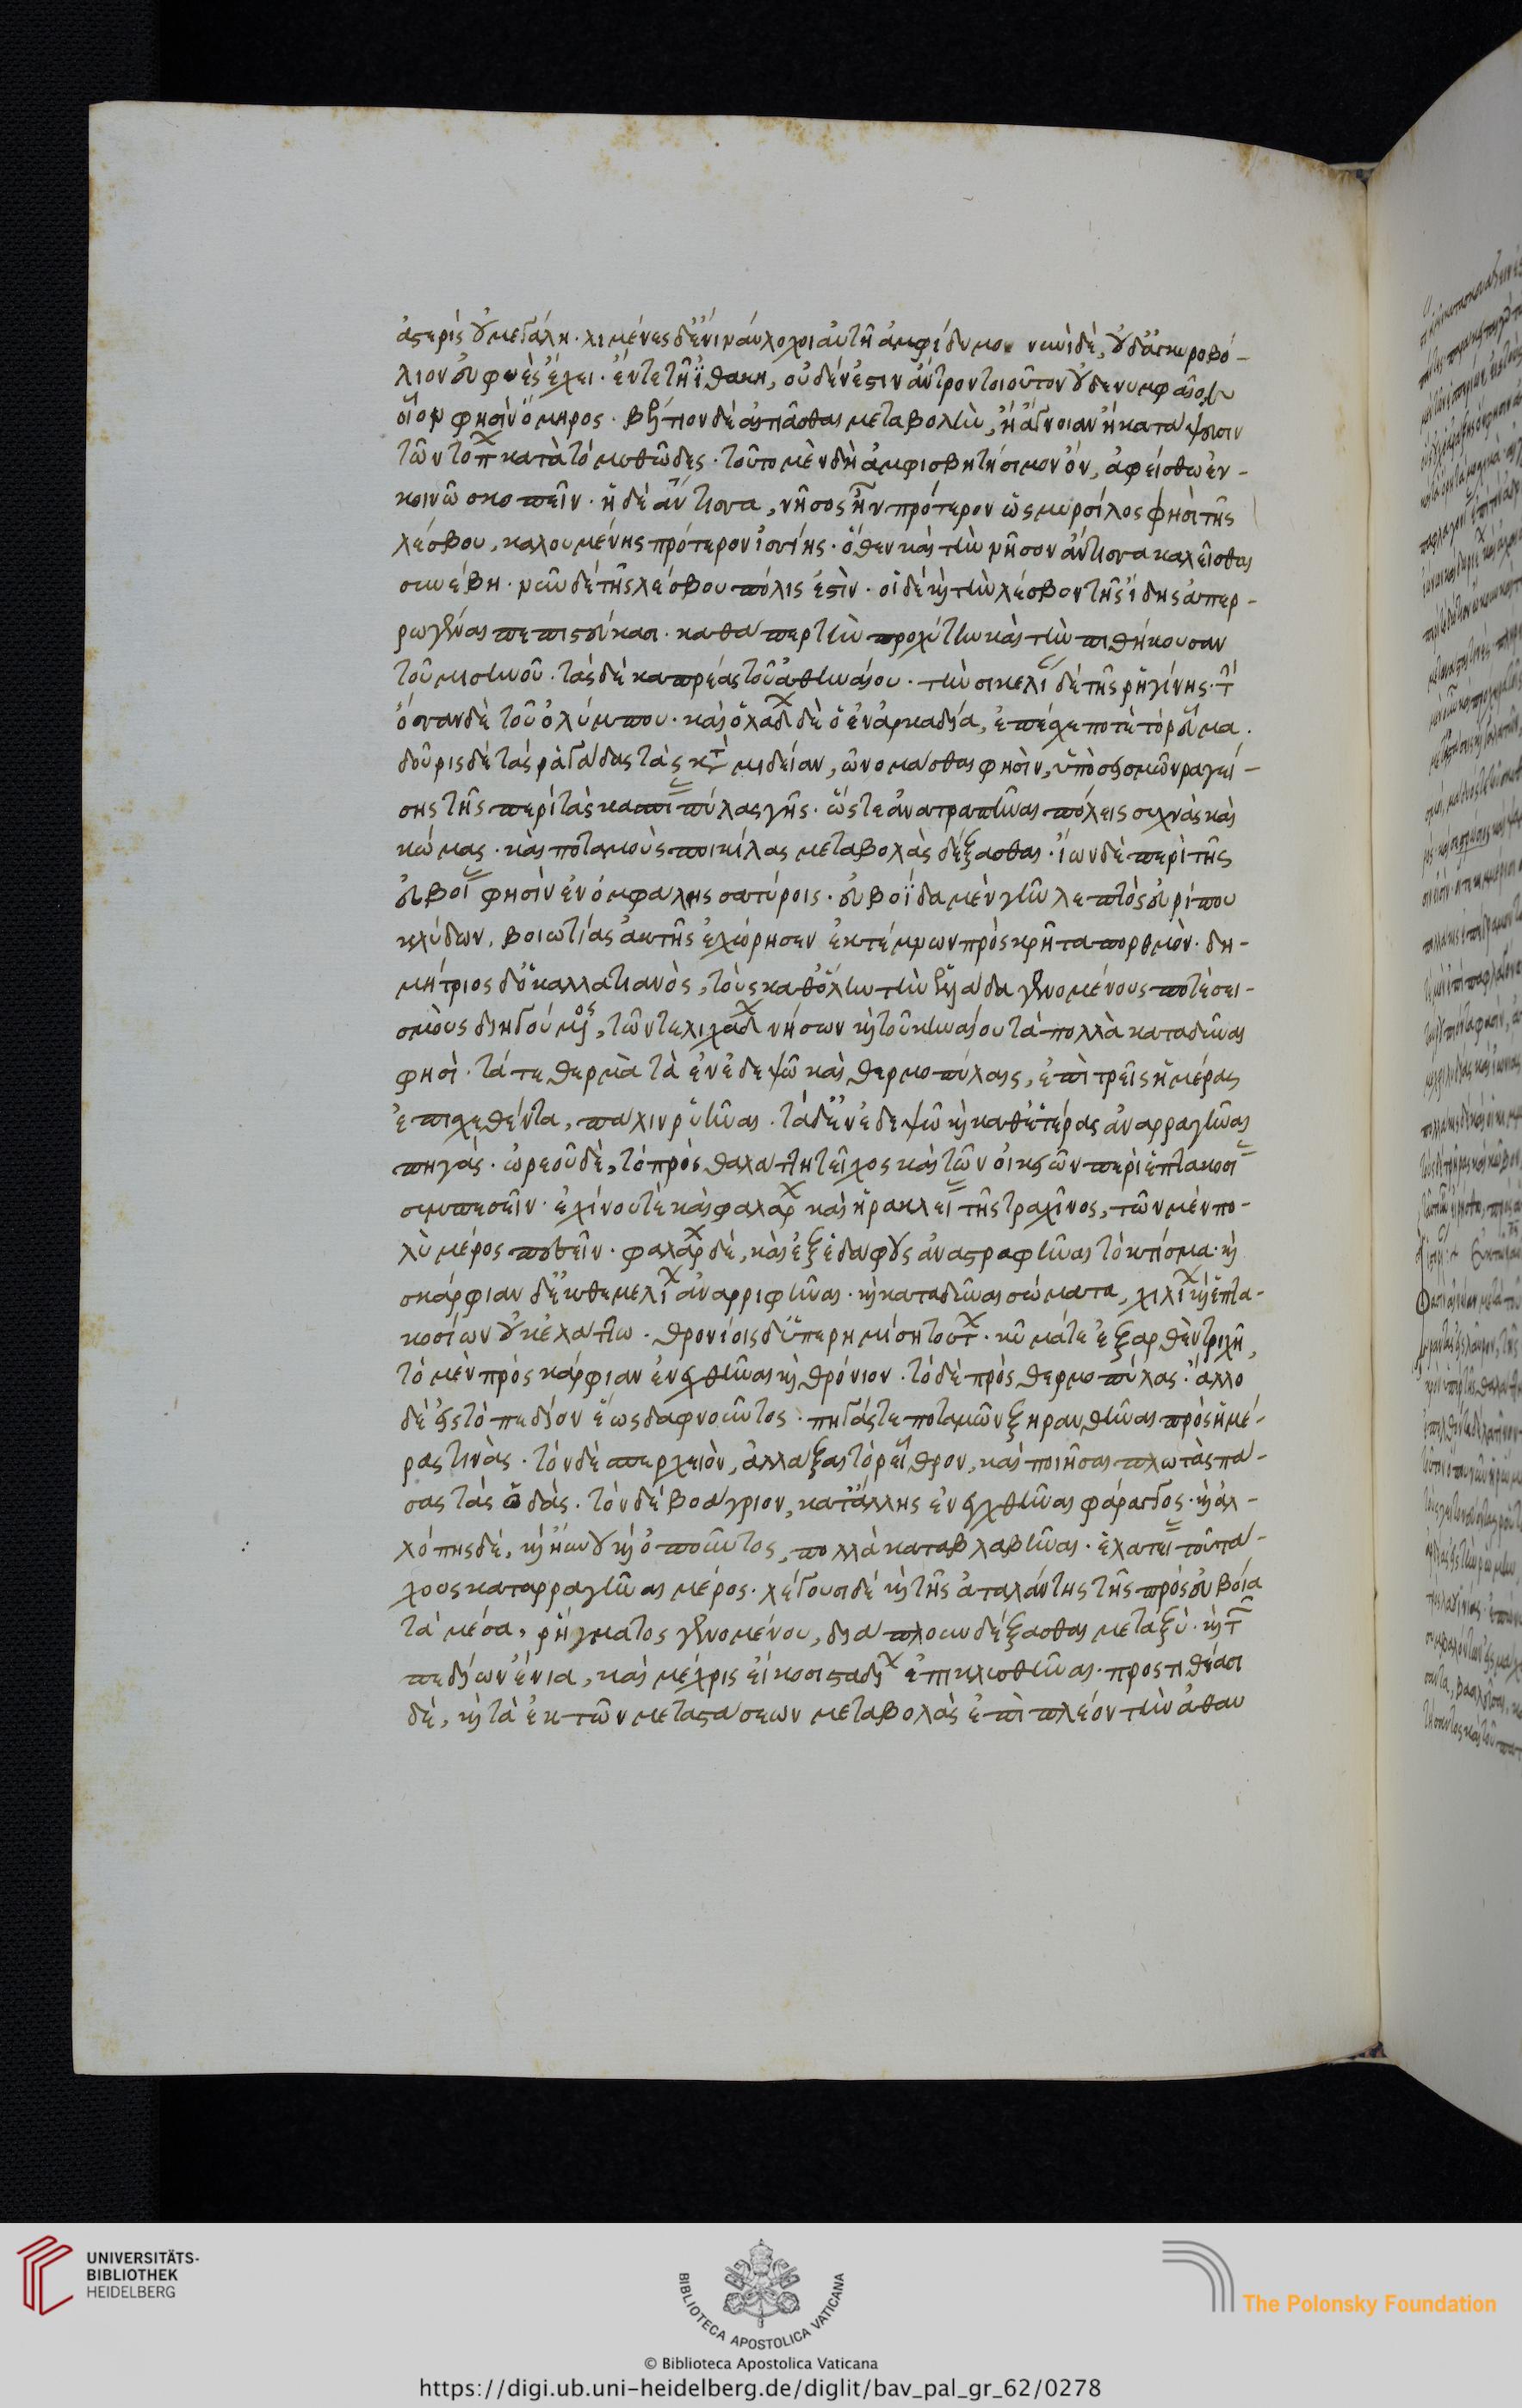 ἀστερὶς οὐ μεγάλη· λιμένες δ' ἔνι ναύλοχοι αὐτῇ ἀμφίδυμοι νυνὶ δὲ, οὐδ' ἀγκυροβό-
λιον εὐφυὲς ἔχει· ἔν τε τῇ ἰθάκη, οὐδέν ἐστιν ἄντρον τοιοῦτον οὐδὲ νυμφαῖον
οἷον φησὶν ὅμηρος· βέλτιον δὲ αἰτιᾶσθαι μεταβολὴν, ἢ ἄγνοιαν ἢ κατάψευσιν
τῶν τόπ κατὰ τὸ μυθῶδες· τοῦτο μὲν δὴ ἀμφισβητήσιμον ὄν, ἀφείσθω ἐν-
κοινῶ σκοπεῖν· ἡ δὲ ἄντισσα, νῆσος ἦν πρότερον ὥς μυρσίλος φησὶ τῆς
λέσβου, καλουμένης πρότερον ἴσσης· ὅθεν καὶ τὴν νῆσον ἄντισσα καλεῖσθαι
συνέβη· νῦν δὲ τῆς λέσβου πόλις ἐστὶν· οἱ δὲ καὶ τὴν λέσβον τῆς ἴδης ἀπερ-
ρωγέναι πεπιστεύκασι· καθάπερ τὴν προχύτην καὶ τὴν πιθήκουσαν
τοῦ μισηνοῦ· τὰς δὲ καπρέας τοῦ ἀθηναίου· τὴν σικελί δὲ τῆς ῥηγίνης· τ
ὄσσαν δὲ τοῦ ὀλύμπου· καὶ ὁ λάδ δὲ ὁ ἐν ἀρκαδία, ἐπέσχε ποτὲ τὸ ῥεῦμα.
δοῦρις δὲ τὰς ῥαγάδας τὰς κτ μιδείαν, ὠνομάσθαι φησὶν, ὑπὸ σεισμῶν ῥαγεί-
σης τῆς περὶ τὰς κασπι πύλας γῆς· ὥστε ἀνατραπῆναι πόλεις συχνὰς καὶ
κώμας· καὶ ποταμοὺς ποικίλας μεταβολὰς δέξασθαι· ἴων δὲ περὶ τῆς
εὐβοί φησὶν ἐν ὀμφάλης σατύροις· εὐβοΐδα μὲν γῆν λεπτὸς εὐρίπου
κλύδων, βοιωτίας ἀκτῆς ἐχώρησεν ἐκτέμνων πρὸς κρῆτα πορθμὸν· δη-
μήτριος δ' ὁ καλλατιανὸς, τοὺς καθ' ὅλην τὴν ἑλλάδα γενομένους ποτὲ σει-
σμοὺς διηγούμος, τῶν τε λιχάδ νήσων καὶ τοῦ κηναίου τὰ πολλὰ καταδῦναι
φησὶ· τά τε θερμὰ τὰ ἐν ἐδεψῶ καὶ θερμοπύλαις, ἐπὶ τρεῖς ἡμέρας
ἐπισχεθέντα, πάλιν ῥυῆναι· τὰ δ' ἐν ἐδεψῶ καὶ καθ' ἑτέρας ἀναρραγῆναι
πηγάς· ὠρεοῦ δὲ, τὸ πρὸς θαλάττη τεῖχος καὶ τῶν οἰκειῶν περὶ ἑπτακοσί
συμπεσεῖν· ἐχίνου τὲ καὶ φαλάρ καὶ ἡρακλεί τῆς τραχῖνος, τῶν μὲν πο-
λὺ μέρος πεσεῖν· φαλάρ δὲ, καὶ ἐξ ἐδάφους ἀναστραφῆναι τὸ κτίσμα· καὶ
σκάρφιαν δ' ἐκ θεμελί ἀναρριφῆναι· καὶ καταδῦναι σώματα, χιλί καὶ ἑπτα-
κοσίων οὐκ ἐλάττω· θρονίοις δ' ὑπὲρ ημίση τούτ· κῦμά τε ἐξαρθὲν τριχῆ,
τὸ μὲν πρὸς κάρφιαν ἐνεχθῆναι καὶ θρόνιον· τὸ δὲ πρὸς θερμοπύλας· ἄλλο
δὲ εἰς τὸ πεδίον ἕως δαφνοῦντος· πηγάς τε ποταμῶν ξηρανθῆναι πρὸς ἡμέ-
ρας τινὰς· τὸν δὲ σπερχειὸν, ἀλλάξαι τὸ ῥεῖθρον, καὶ ποιῆσαι πλωτὰς πά-
σας τὰς ὁδάς· τὸν δὲ βοάγριον, κατ' ἄλλης ἐνεχθῆναι φάραγγος· καὶ ἀλ-
λόπης δὲ, καὶ κύνου καὶ ὀποῦντος, πολλὰ καταβλαβῆναι· ἐλατεί τοῦ τά-
χους καταρραγῆναι μέρος· λέγουσι δὲ καὶ τῆς ἀταλάντης τῆς πρὸς εὐβοία
τὰ μέσα, ῥήγματος γενομένου, διάπλουν δέξασθαι μεταξὺ· καὶ τ
πεδίων ἔνια, καὶ μέχρις εἴκοσι σταδί ἐπικλυσθῆναι· προστιθέασι
δὲ, καὶ τὰ ἐκ τῶν μεταστάσεων μεταβολὰς ἐπὶ πλέον τὴν ἀθαυ
UNIVERSITÄTS-
BIBLIOTHEK
HEIDELBERG
BIBLIOTECA APOSTOLICA VATICANA
© Biblioteca Apostolica Vaticana
The Polonsky Foundation
https://digi.ub.uni-heidelberg.de/diglit/bav_pal_gr_62/0278